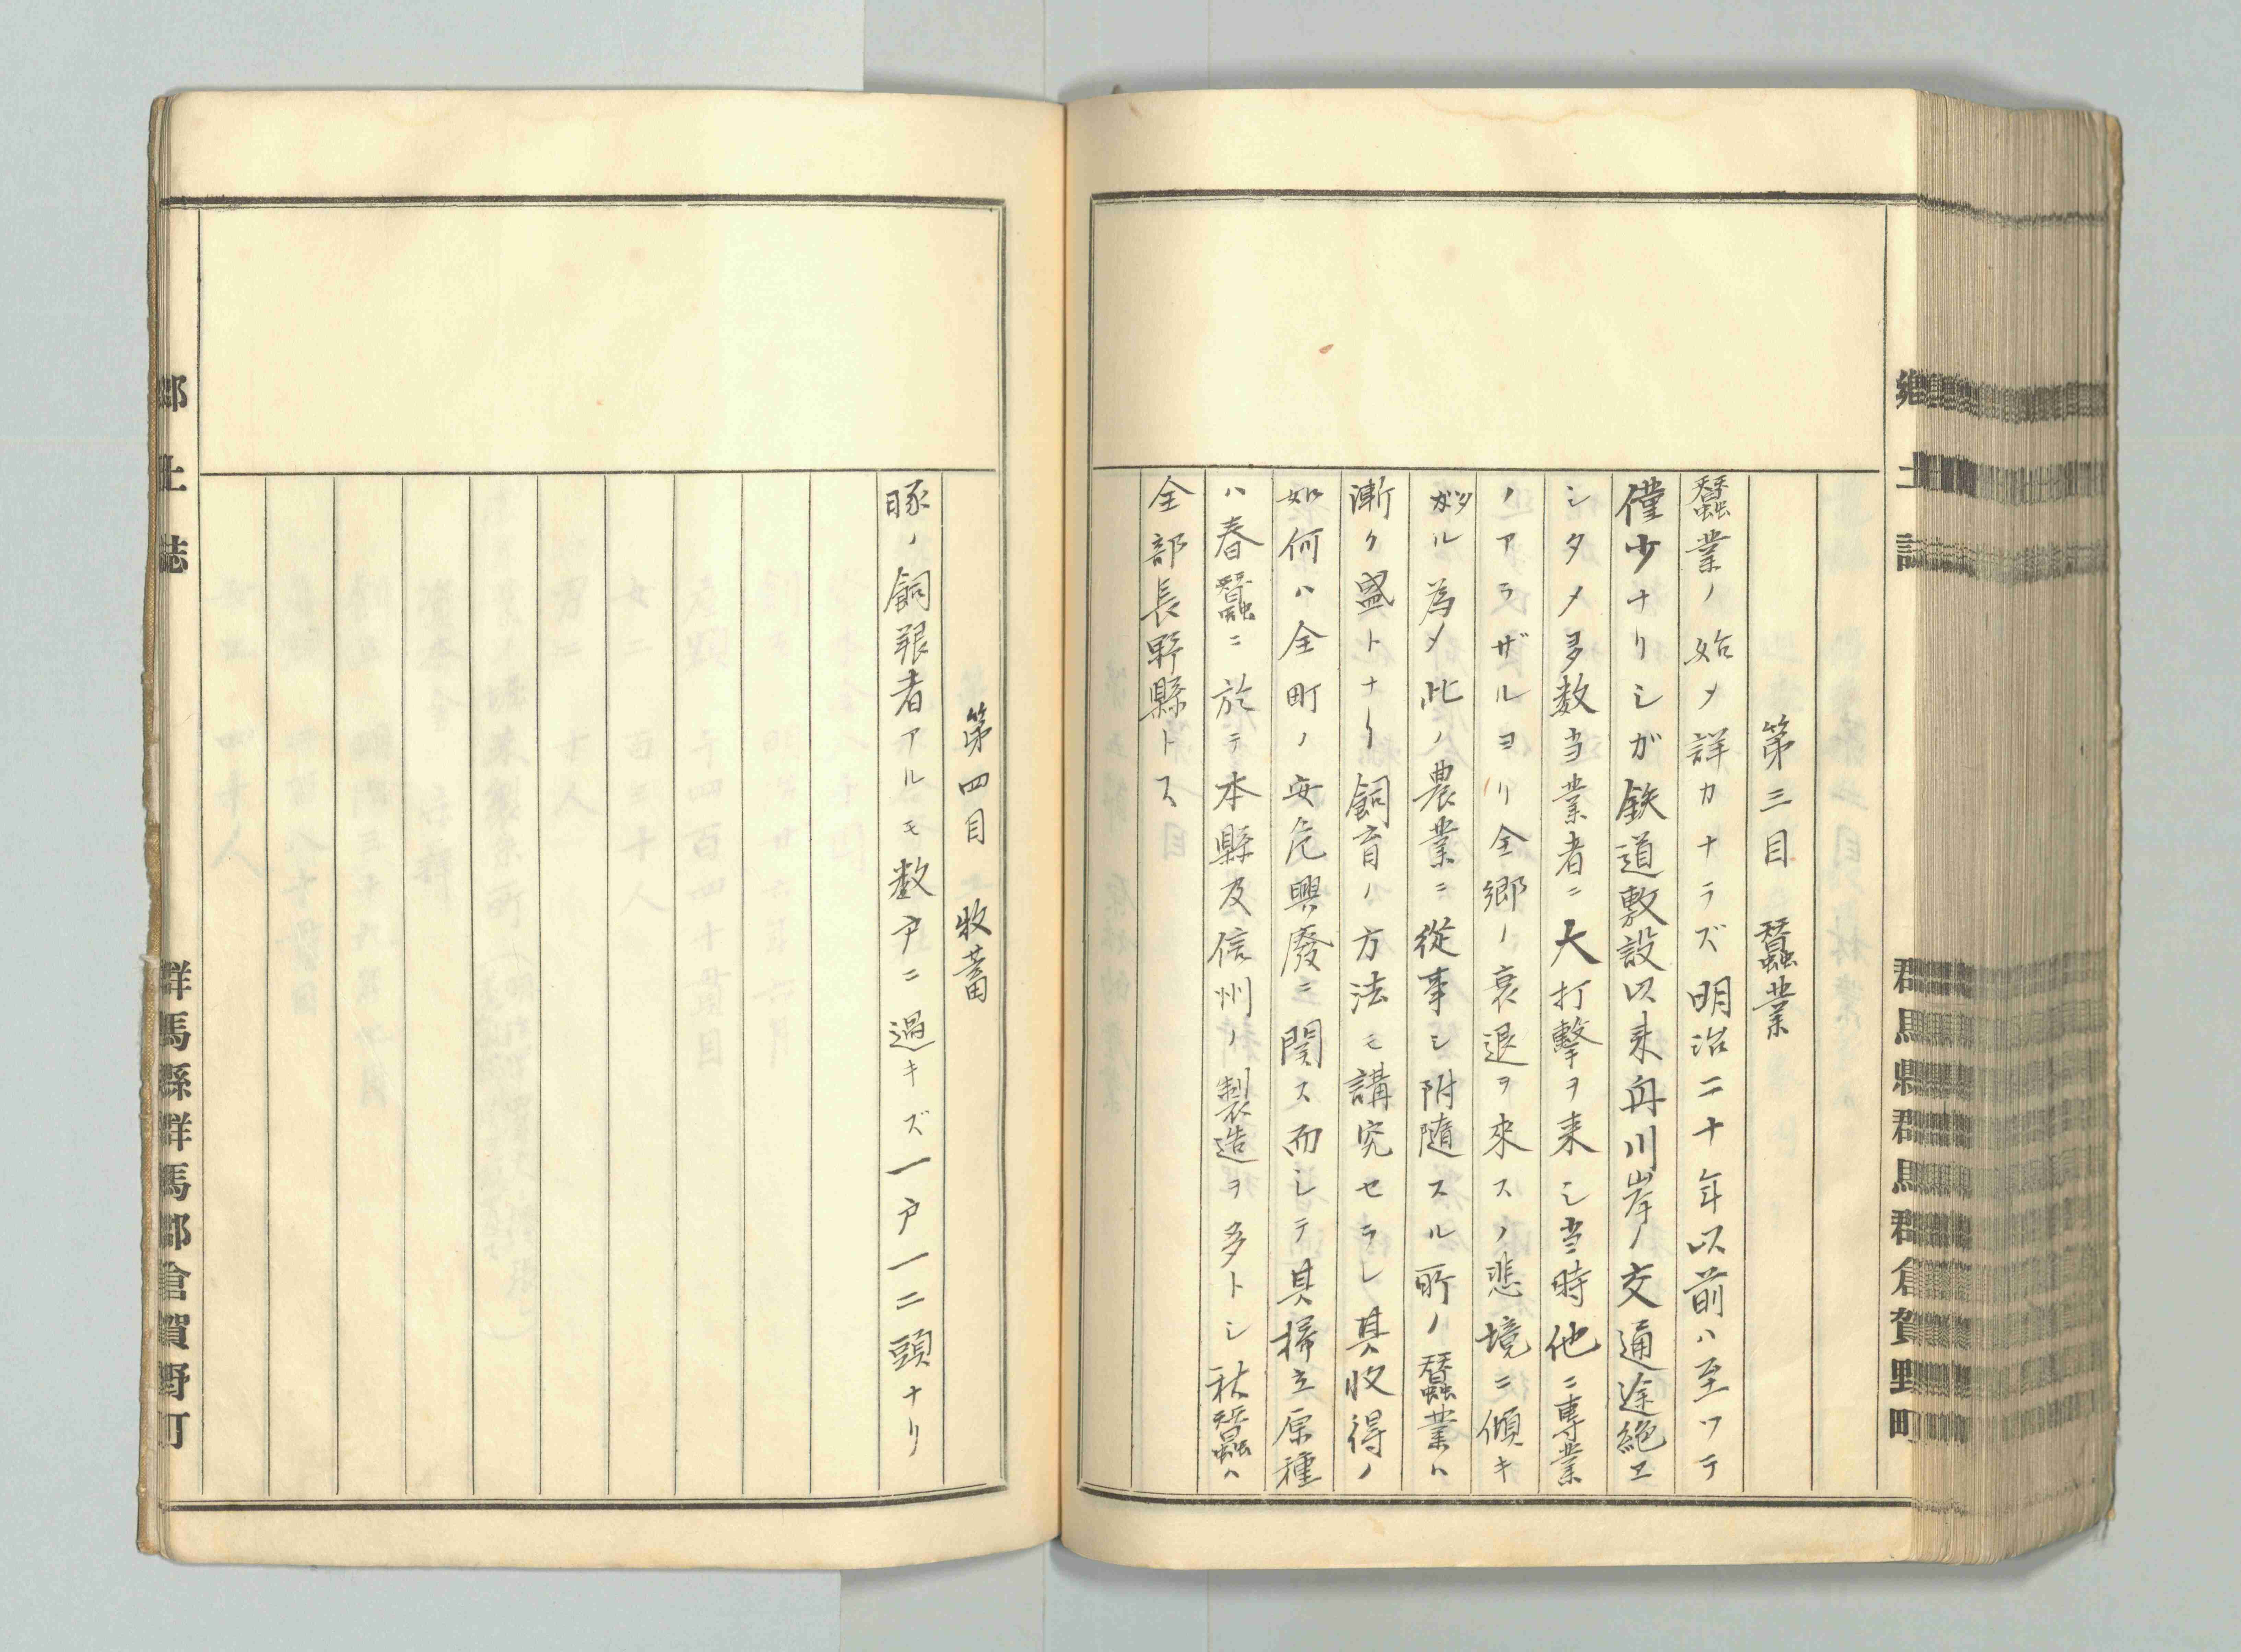 鄕土誌
群馬県群馬郡倉賀野町
第三目 蠶業
蠶業ノ始メ詳カナラズ明治二十年以前ハ至ツテ
僅少ナリシガ鉄道敷設以来舟川岸ノ交通途絶ヱ
シタメ多数当業者ニ大打撃ヲ来シ当時他ニ專業
ノアラザルヨリ全郷ノ衰退ヲ來スノ悲境ニ傾キ
タルガ為メ此ノ農業ニ從事シ附随スル所ノ蠶業ハ
漸ク盛トナリ飼育ノ方法モ講究セラレ其收得ノ
如何ハ全町ノ安危興廢ニ関ス而シテ其掃立原種
ハ春蠶ニ於テ本縣及信州ノ製造ヲ多トシ秋蠶ハ
全部長野縣トス
第四目 牧蓄
豚ノ飼養者アルモ数戸ニ過キズ一戸一二頭ナリ
鄕土誌
群馬縣群馬郡倉賀野町